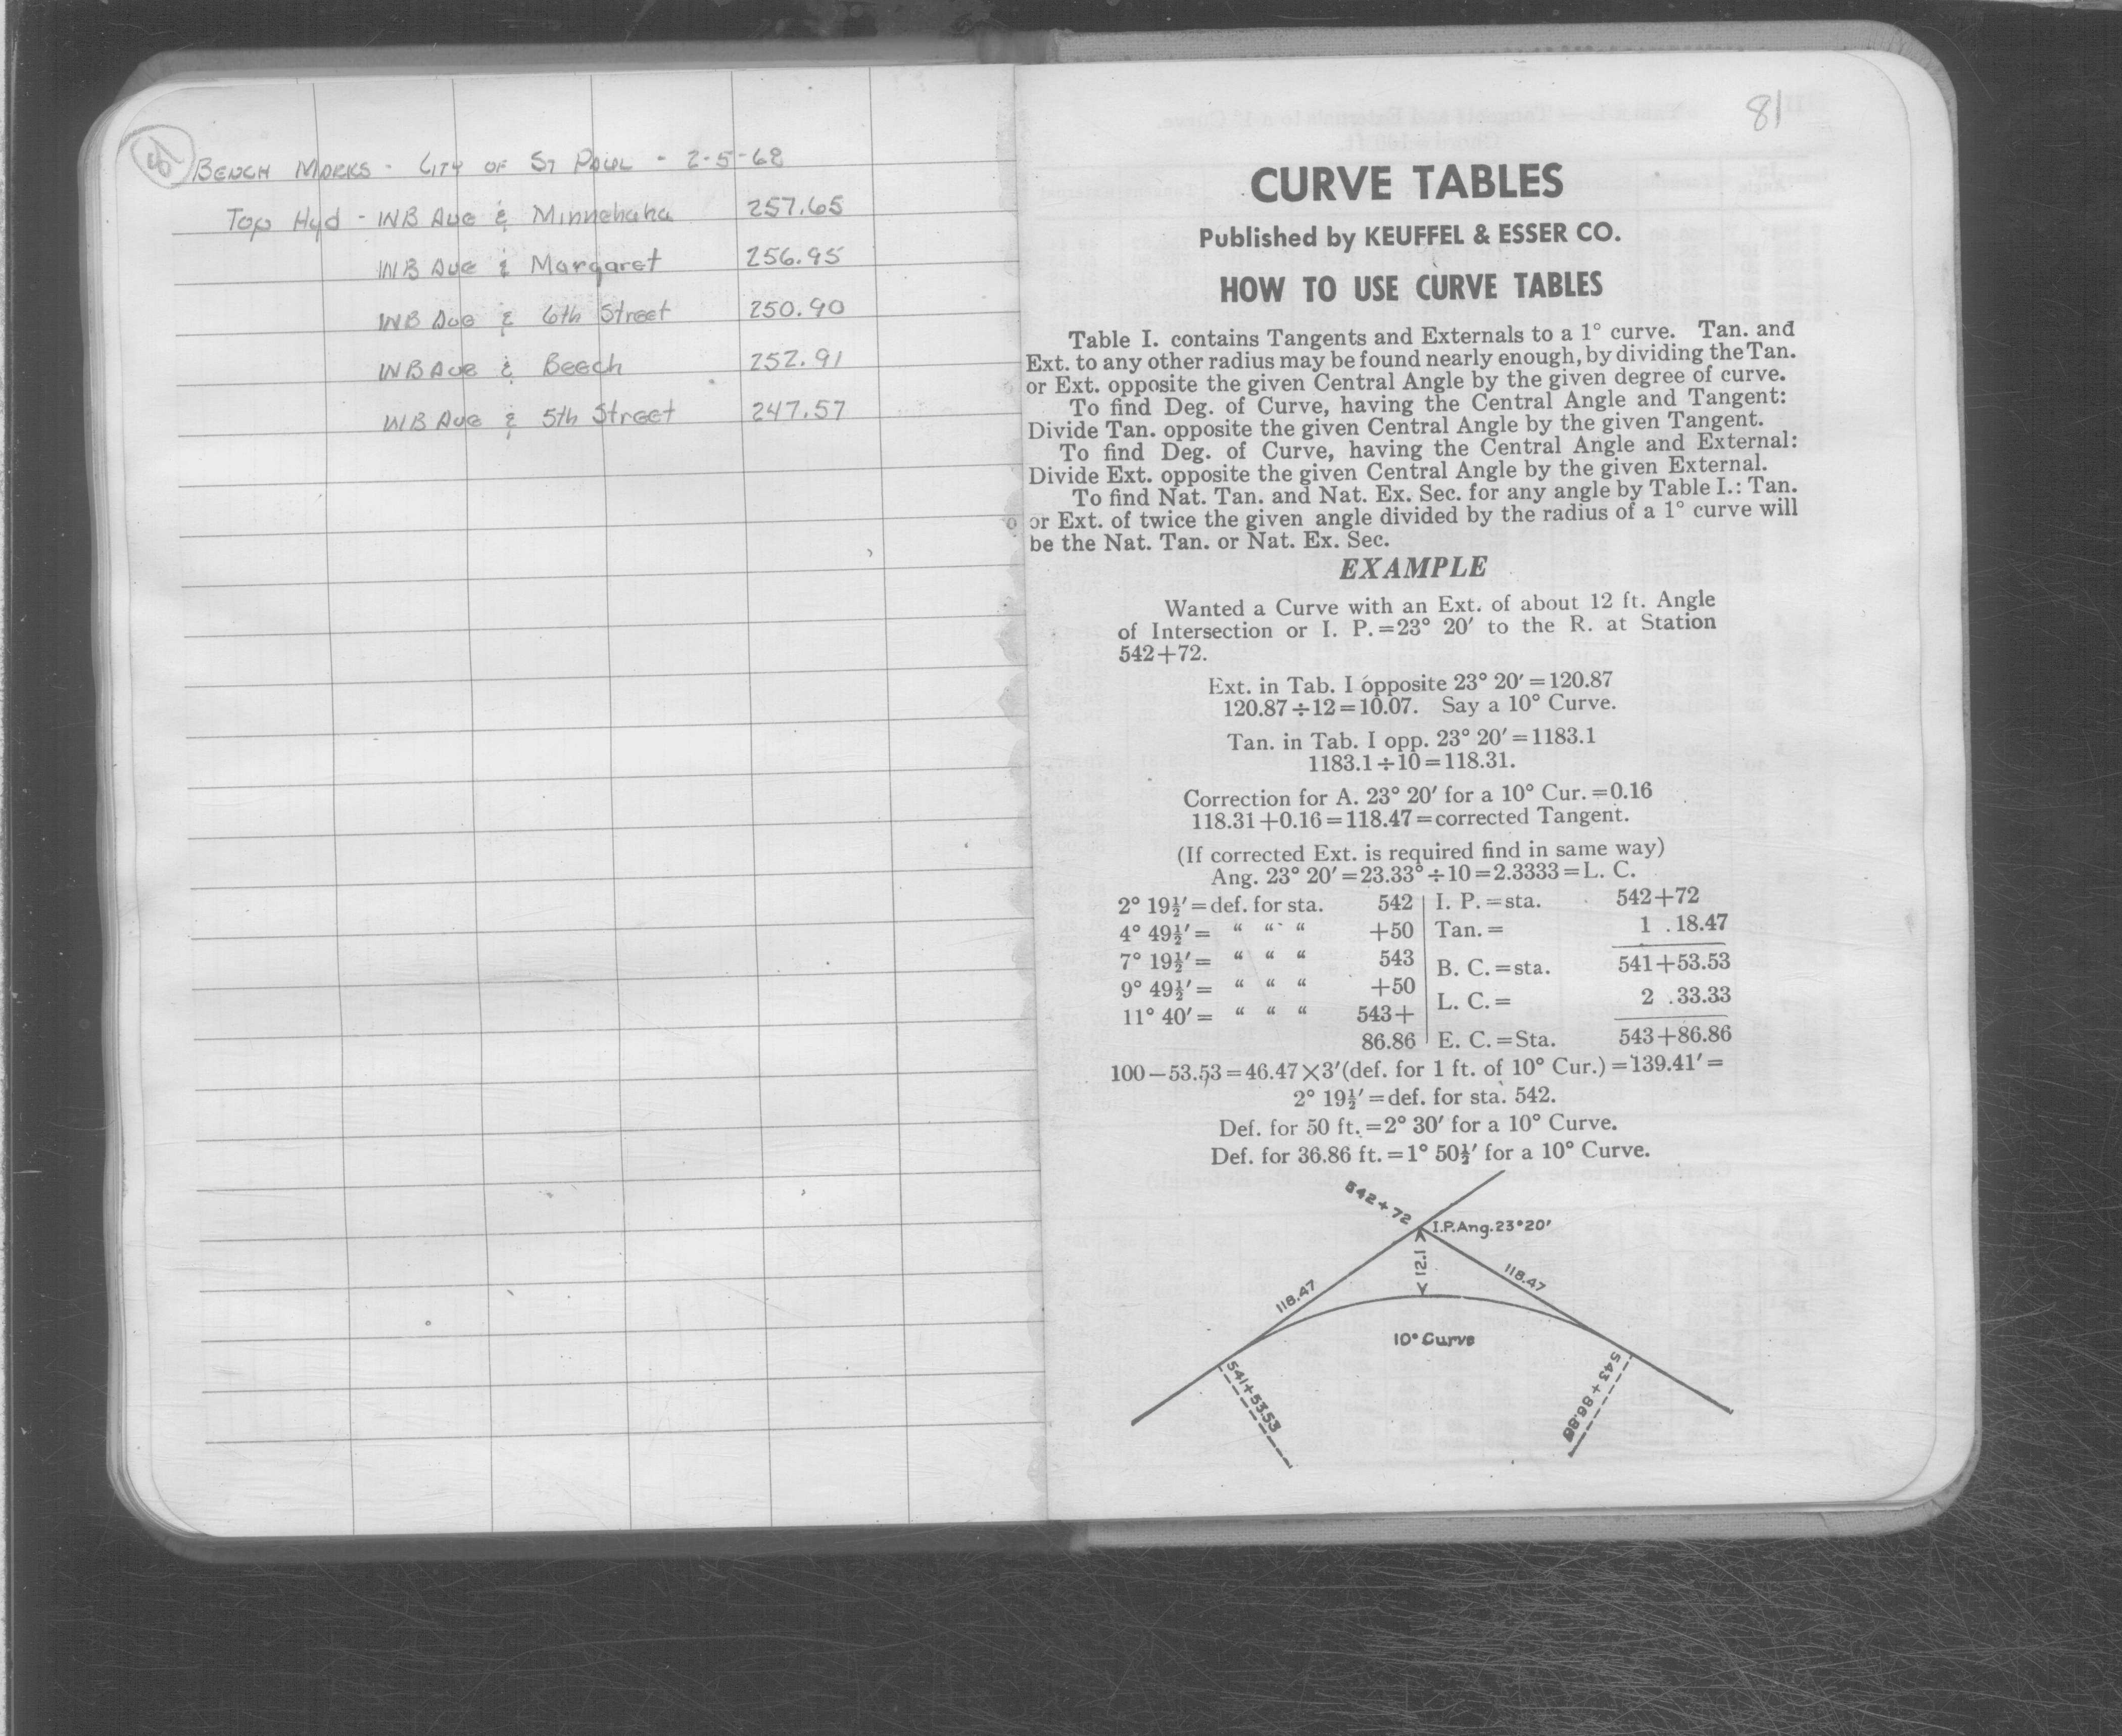 BENCH MARKS - CITY OF ST PAUL - 2-5-68
Top Hyd - WB Ave & Minnehaha 257.65
WB Ave & Margaret 256.95
WB Ave & 6th Street 250.90
WB Ave & Beech 252.91
WB Ave & 5th Street 247.57
81
CURVE TABLES
Published by KEUFFEL & ESSER CO.
HOW TO USE CURVE TABLES
Table I. contains Tangents and Externals to a 1° curve. Tan. and
Ext. to any other radius may be found nearly enough, by dividing the Tan.
or Ext. opposite the given Central Angle by the given degree of curve.
To find Deg. of Curve, having the Central Angle and Tangent:
Divide Tan. opposite the given Central Angle by the given Tangent.
To find Deg. of Curve, having the Central Angle and External:
Divide Ext. opposite the given Central Angle by the given External.
To find Nat. Tan. and Nat. Ex. Sec. for any angle by Table I.: Tan.
or Ext. of twice the given angle divided by the radius of a 1° curve will
be the Nat. Tan. or Nat. Ex. Sec.
EXAMPLE
Wanted a Curve with an Ext. of about 12 ft. Angle
of Intersection or I. P.=23° 20′ to the R. at Station
542+72.
Ext. in Tab. I opposite 23° 20′=120.87
120.87÷12=10.07. Say a 10° Curve.
Tan. in Tab. I opp. 23° 20′=1183.1
1183.1÷10=118.31.
Correction for A. 23° 20′ for a 10° Cur.=0.16
118.31+0.16=118.47=corrected Tangent.
(If corrected Ext. is required find in same way)
Ang. 23° 20′=23.33°÷10=2.3333=L. C.
2° 19½′=def. for sta. 542 I. P.=sta. 542+72
4° 49½′= “ “ “ +50 Tan.= 1 .18.47
7° 19½′= “ “ “ 543 B. C.=sta. 541+53.53
9° 49½′= “ “ “ +50 L. C.= 2 .33.33
11° 40′= “ “ “ 543+
86.86 E. C.=Sta. 543+86.86
100−53.53=46.47×3′(def. for 1 ft. of 10° Cur.)=139.41′=
2° 19½′=def. for sta. 542.
Def. for 50 ft.=2° 30′ for a 10° Curve.
Def. for 36.86 ft.=1° 50½′ for a 10° Curve.
542+72
I.P.Ang.23°20′
12.1
118.47
118.47
10° Curve
541+53.53
543+86.86